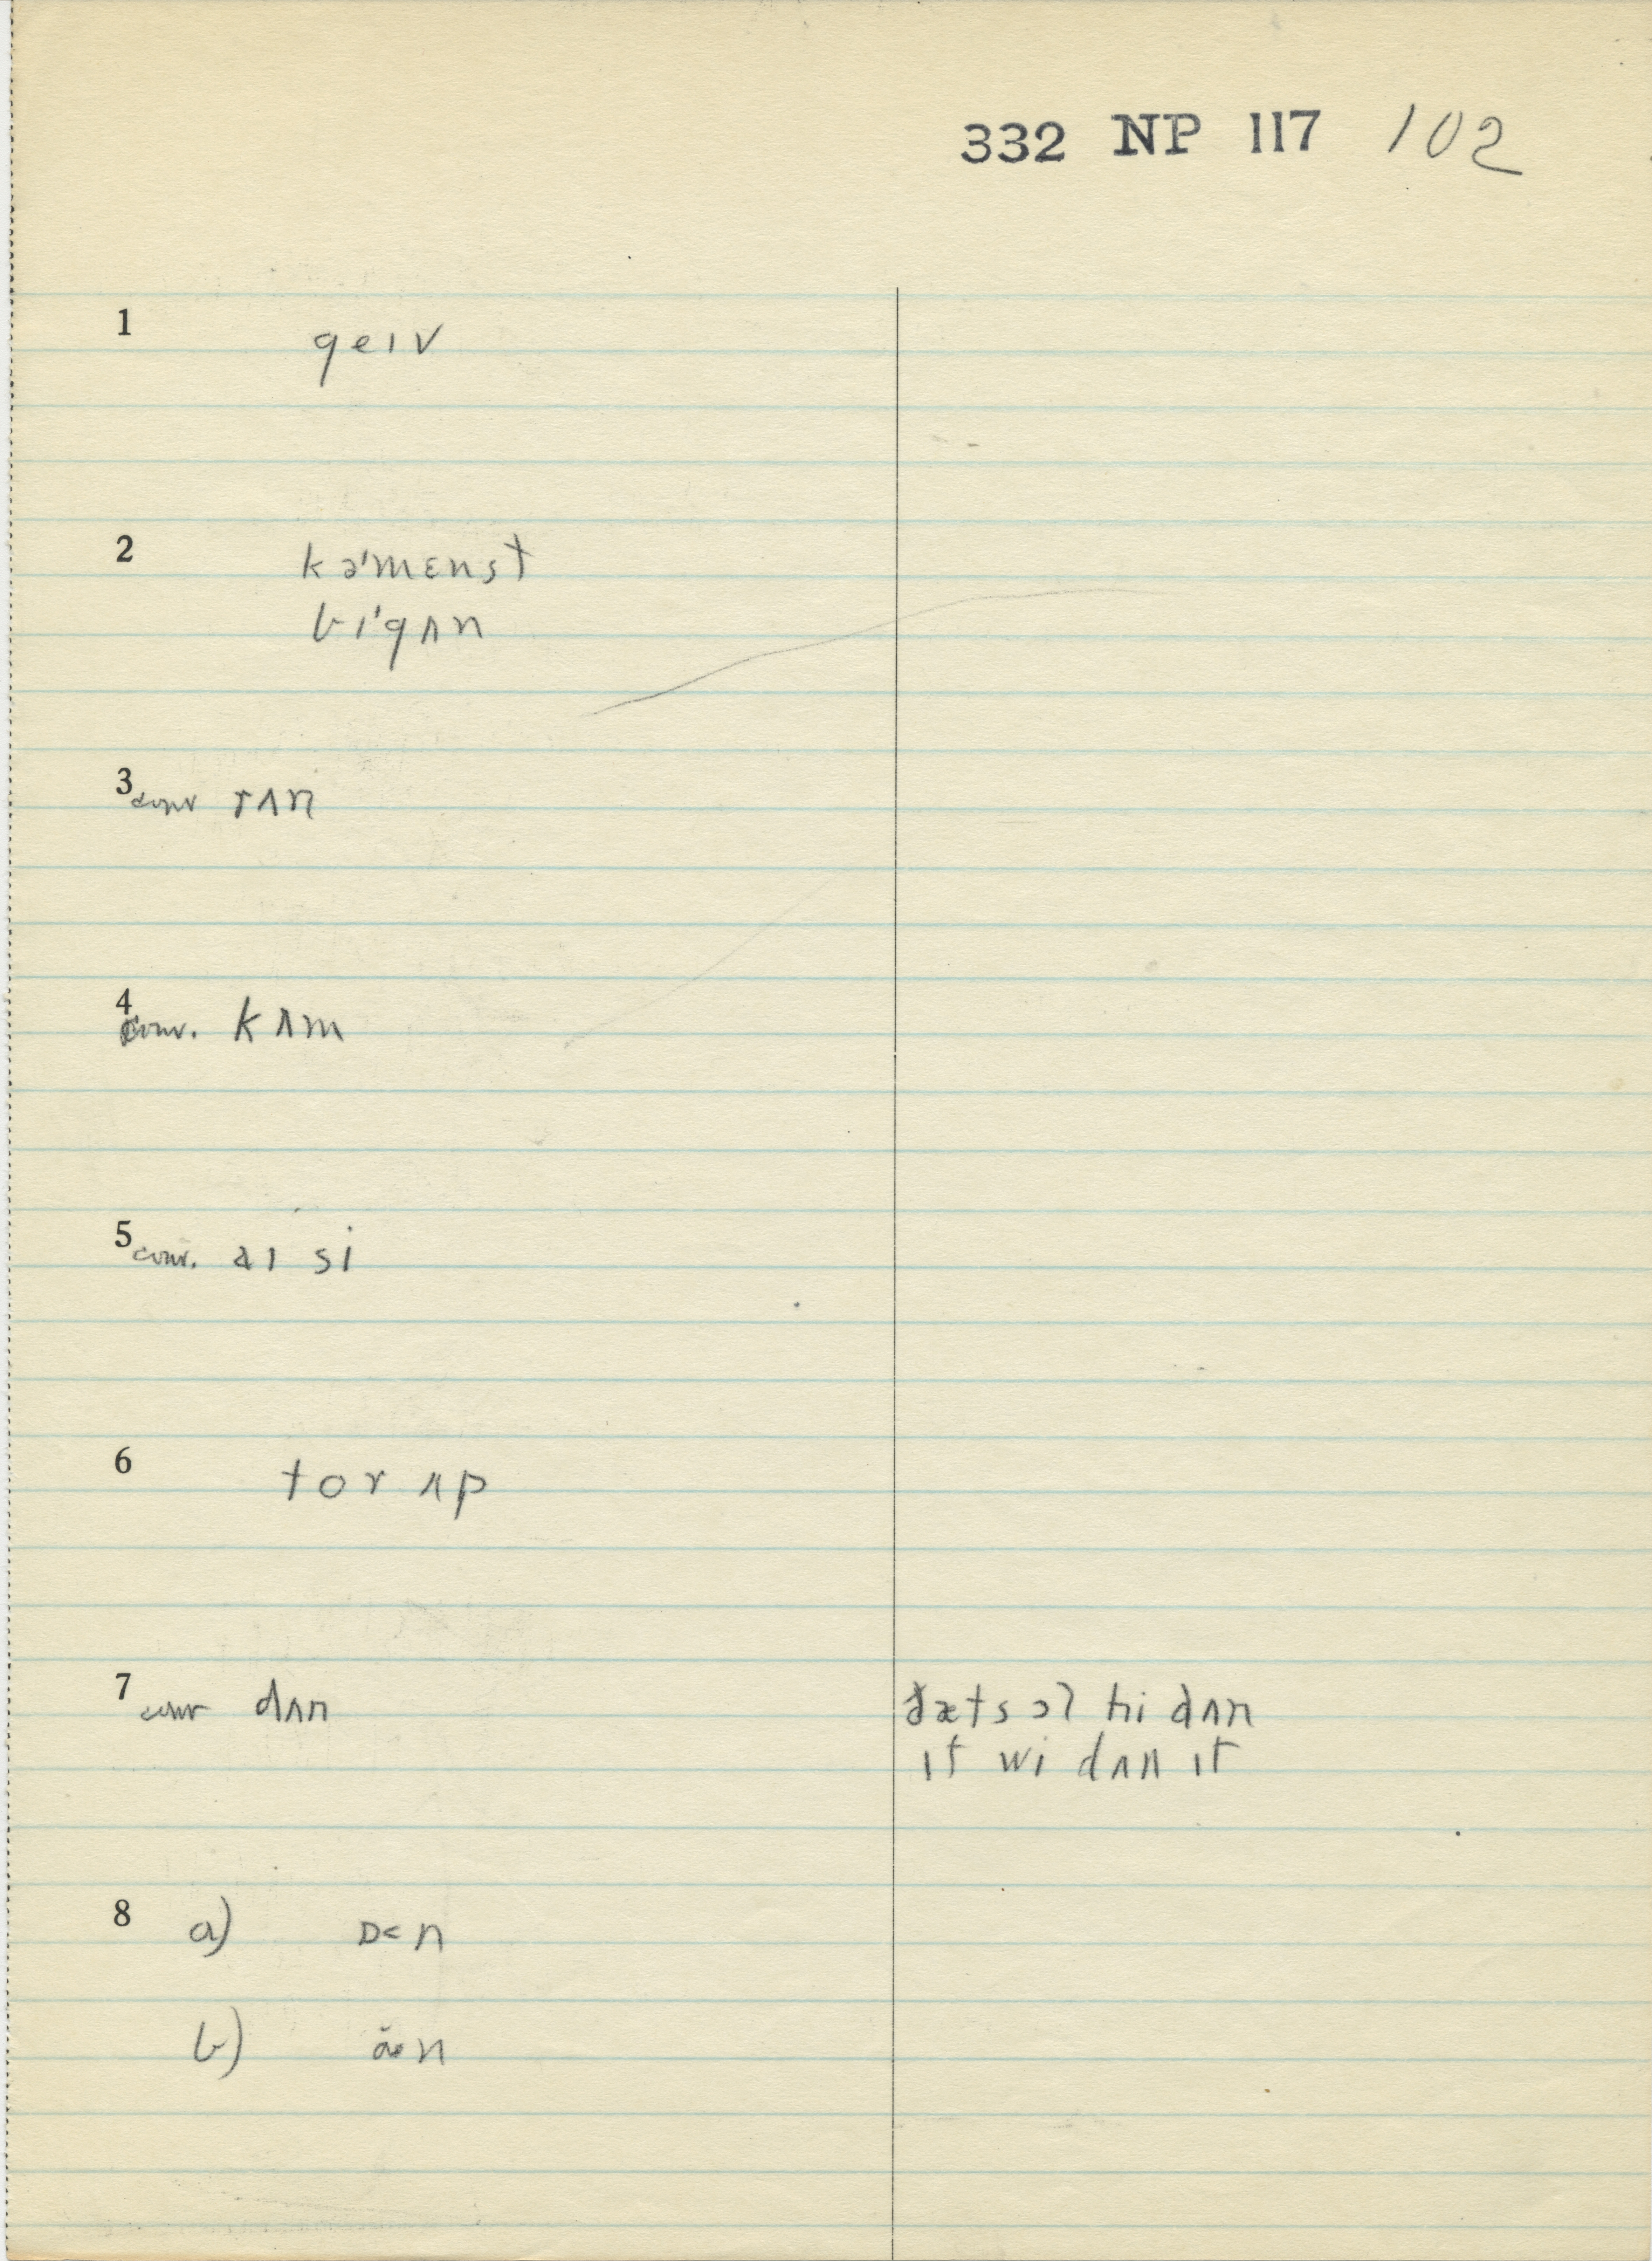 332 NP 117 102
1 geɪv
2 kəˈmɛnst
bɪˈgʌn
3 conv rʌn
4 conv. kʌm
5 conv. aɪ si
6 tor ʌp
7 conv dʌn
ðæts ɔl hi dʌn
ɪt wi dʌn ɪt
8 a) ɒ< n
b) n